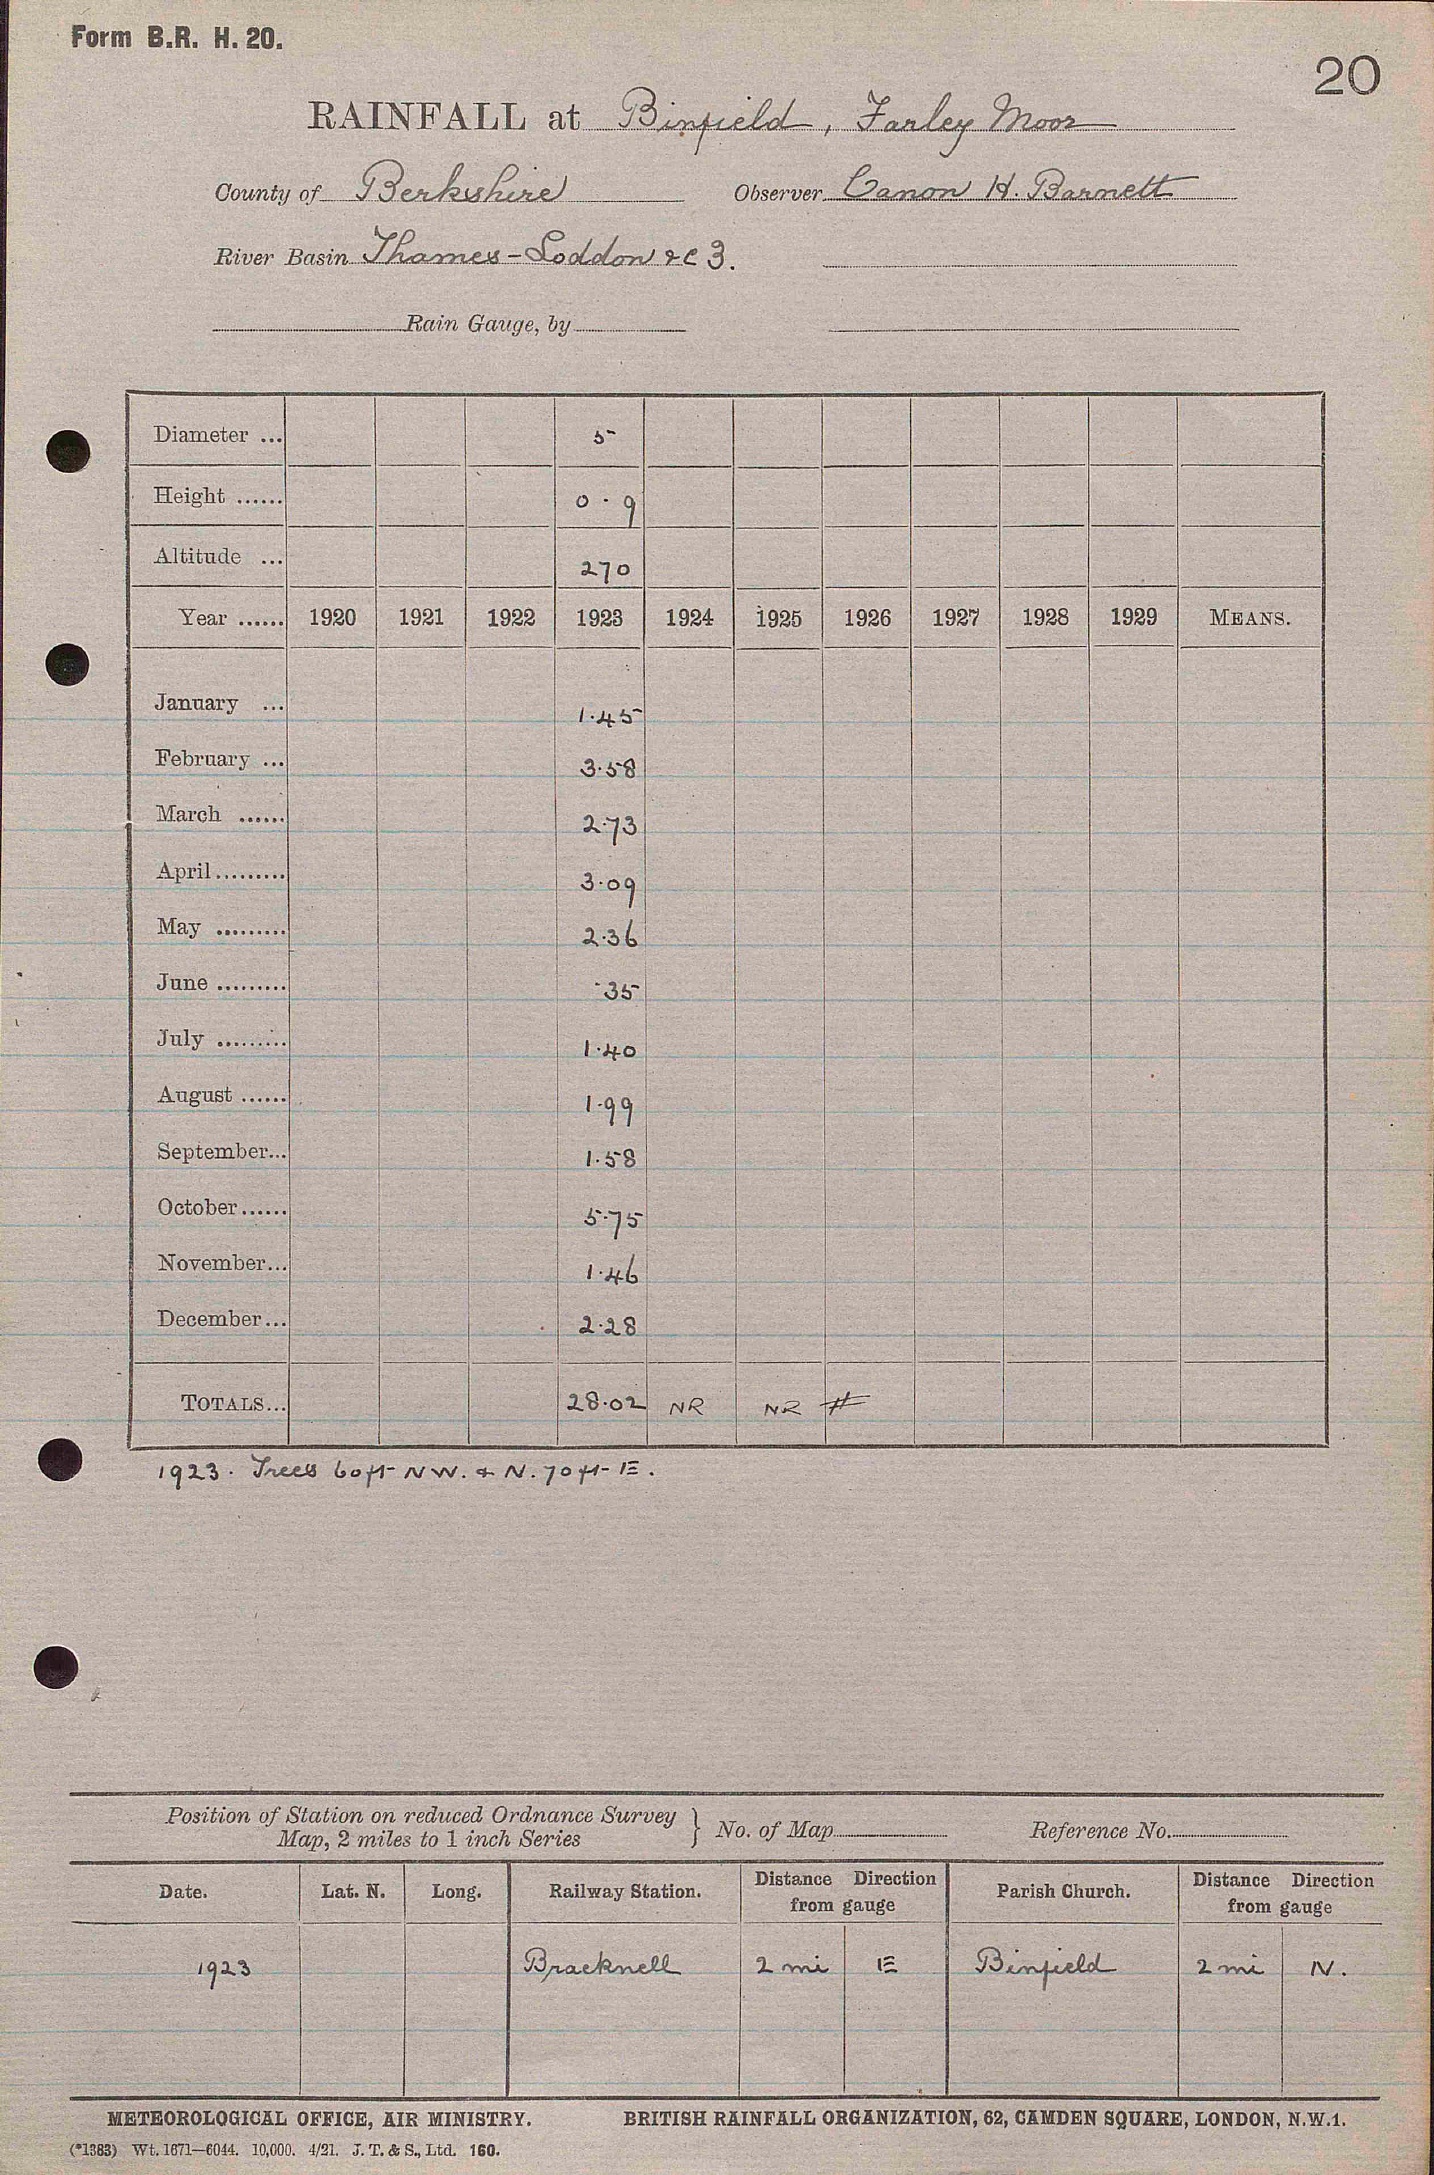 Form B.R. H. 20.
20
RAINFALL at Binfield, Farley Moor
County of Berkshire Observer Canon H. Barnett
River Basin Thames-Loddon &c 3.
Rain Gauge, by
Diameter ... 5
Height ...... 0.9
Altitude ... 270
Year ...... 1920 1921 1922 1923 1924 1925 1926 1927 1928 1929 MEANS.
January ... 1.45
February ... 3.58
March ...... 2.73
April ......... 3.09
May ......... 2.36
June ......... .35
July ......... 1.40
August ...... 1.99
September... 1.58
October...... 5.75
November... 1.46
December... 2.28
TOTALS... 28.02 NR NR #
1923. Trees 60ft NW. & N. 70ft E.
Position of Station on reduced Ordnance Survey Map, 2 miles to 1 inch Series } No. of Map Reference No.
Date. Lat. N. Long. Railway Station. Distance Direction from gauge Parish Church. Distance Direction from gauge
1923 Bracknell 2 mi E Binfield 2 mi N.
METEOROLOGICAL OFFICE, AIR MINISTRY. BRITISH RAINFALL ORGANIZATION, 62, CAMDEN SQUARE, LONDON, N.W.1.
(*1383) Wt. 1671—6044. 10,000. 4/21. J. T. & S., Ltd. 160.